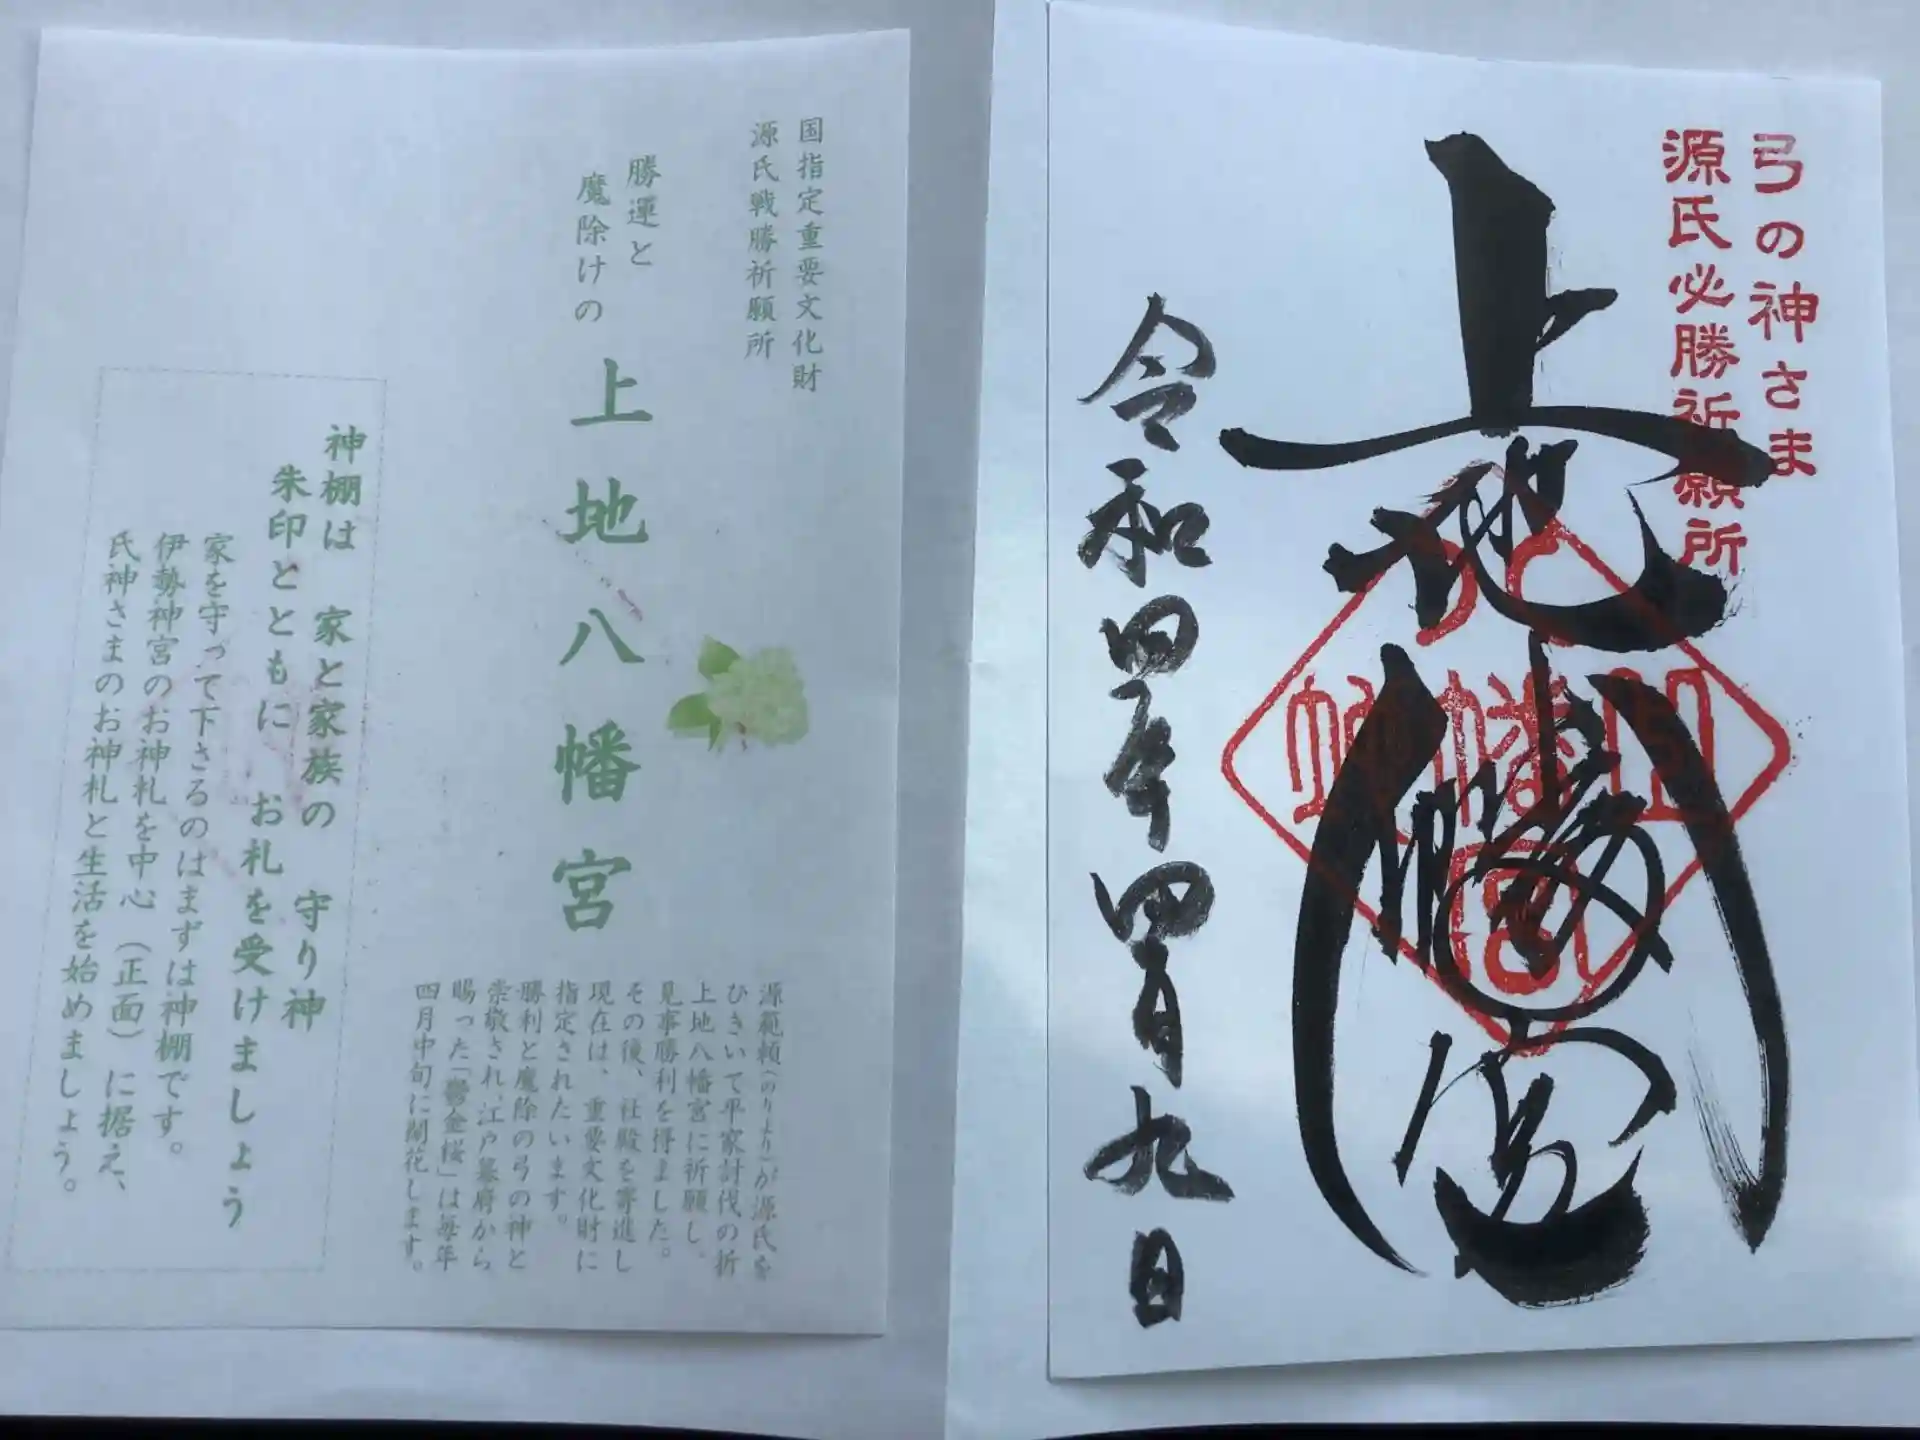 国指定重要文化財
源氏戦勝祈願所
勝運と
魔除けの
上地八幡宮
源範頼(のりより)が源氏を
ひきいて平家討伐の折
上地八幡宮に祈願し、
見事勝利を得ました。
その後、社殿を寄進し
現在は、重要文化財に
指定されたいます。
勝利と魔除の弓の神と
崇敬され、江戸幕府から
賜った「鬱金桜」は毎年
四月中旬に開花します。
神棚は 家と家族の 守り神
朱印とともに お札を受けましょう
家を守って下さるのはまずは神棚です。
伊勢神宮のお神札を中心(正面)に据え、
氏神さまのお神札と生活を始めましょう。
弓の神さま
源氏必勝祈願所
上地八幡宮
令和四年四月九日